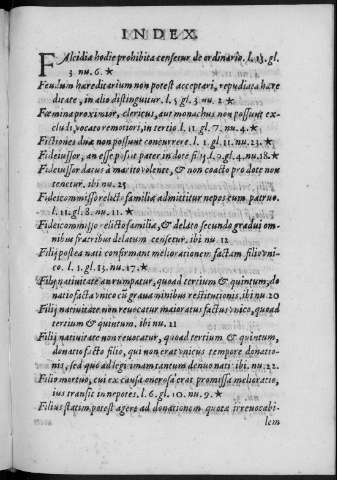 INDEX
FAlcidia hodie prohibita censetur de ordinario. l. 15. gl.
3. nu. 6. ★
Feudum hæreditarium non potest acceptari, repudiata hære
ditate, in alio distinguitur. l. 5 gl. 3. nu. 2 ★
Fœmina proximior, clericus, aut monachus non possunt ex
cludi, vocato remotiori, in tertio l. 11. gl. 7. nu. 4. ★
Fictiones duæ non possunt concurrere. l. 1. gl. 11. nu. 23. ★
Fideiussor, an esse possit pater in dote fi. l. 9. gl. 4. nu. 18. ★
Fideiussor datus à marito volente, & non coacto pro dote non
tenetur. ibi nu. 25
Fideicommisso relicto familiæ admittitur nepos cum patruo.
l. 11. gl. 8. nu. 11. ★
Fideicommisso relicto familiæ, & delato secundo gradui om
nibus fratribus delatum censetur. ibi nu. 12
Filij postea nati confirmant meliorationem factam filio vni
co. l. 1. gl. 13. nu. 17. ★
Filij natiuitate an rumpatur, quoad tertium & quintum, do
natio facta vnico cū grauaminibus restitutionis, ibi nu 20
Filij natiuitate non reuocatur maioratus factus vnico, quoad
tertium & quintum, ibi nu. 21
Filij natiuitate non reuocatur, quoad tertium & quintum,
donatio facto filio, qui non erat vnicus tempore donatio-
nis, sed quo ad legitimam tantum de nuo nati ibi. nu. 22.
Filio mortuo, cui ex causa onerosa erat promissa melioratio,
ius transit in nepotes. l. 6. gl. 10. nu. 9. ★
Filius statim potest agere ad donationem quotæ irreuocabi-
lem